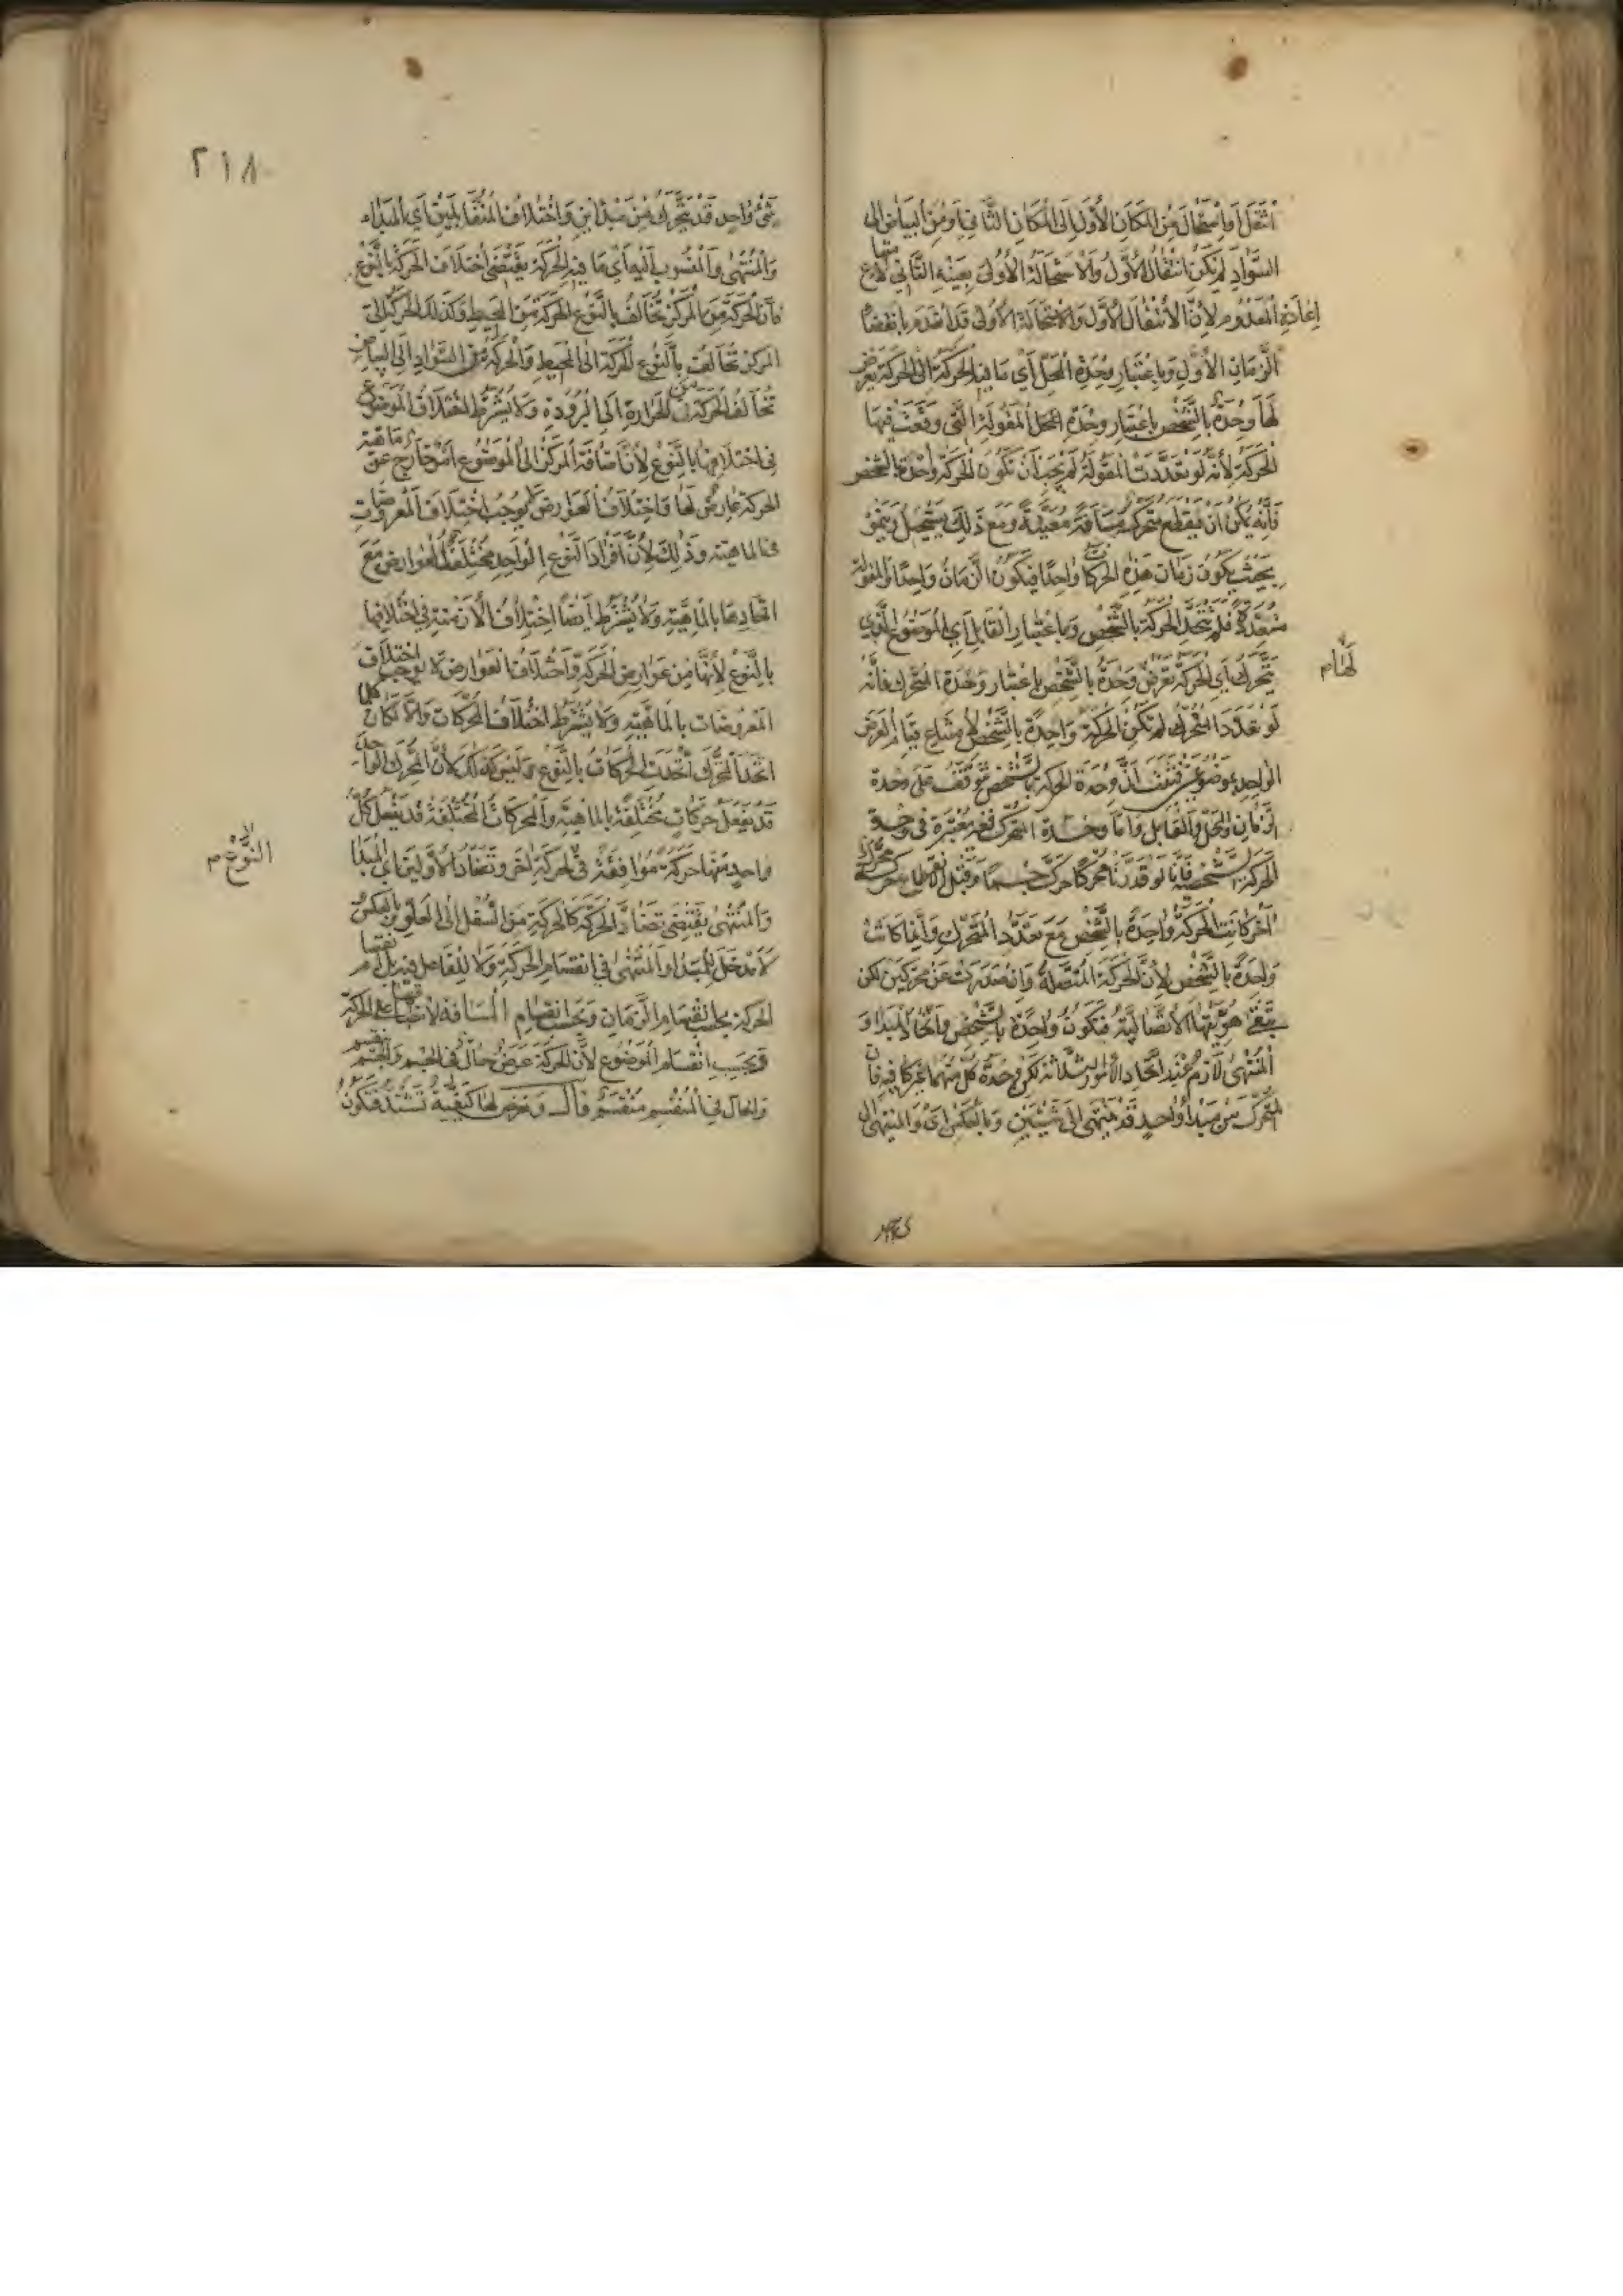 انتقل او استحال من المكان الأول إلى المكان الثاني او من البياض الى
السواد لم يكن انتقال الأول والاستحالة الأولى بعينه الثاني لامتناع
إعادة المعدوم لأن الانتقال الأول والاستحالة الأولى قد انعدم بانقضاء
الزمان الأول وباعتبار وحدة المحل أي ما فيه الحركة اي الحركة يعرض
لها وحدة بالشخص باعتبار وحدة المحل المقولة التي وقعت فيها
الحركة لأنه لو تعددت المقولة لم يجب ان تكون الحركة واحدة بالشخص
فانه يمكن ان يقطع متحرك مسافة معينة ومع ذلك يستحيل وينمو
بحيث يكون زمان هذه الحركات واحدا فيكون الزمان واحدا والمقولة
متعددة فلم تتحد الحركة بالشخص وباعتبار القابل أي الموضوع الذي
يتحرك أي الحركة تعرض وحدة بالشخص باعتبار وحدة المتحرك فانه
لهام
لو تعدد المتحرك لم تكن الحركة واحدة بالشخص لامتناع قيام العرض
الواحد بموضوعين فثبت ان وحدة الحركة بالشخص تتوقف على وحدة
الزمان والمحل والقابل واما وحدة المحرك فغير معتبرة في وحدة
الحركة الشخصية فانا لو قدرنا محركا حرك جسما وقبل انقطاع حركته محرك
آخر كانت الحركة واحدة بالشخص مع تعدد المحرك وانما كانت
واحدة بالشخص لأن الحركة المتصلة وان صدرت عن محركين لكن
تبقى هويتها الاتصالية فتكون واحدة بالشخص واتحاد المبدأ و
المنتهى لازم عند اتحاد الأمور الثلاثة لكن وحدة كل منهما غير كافية فان
المتحرك من مبدأ واحد قد ينتهى الى شيئين وبالعكس اي والمنتهى الى
٢١٨
شيء واحد قد يتحرك من مبدأين واختلاف المتقابلين أي المبداء
والمنتهى والمنسوب اليه أي ما فيه الحركة يقتضى اختلاف الحركة بالنوع
فان الحركة من المركز تخالف بالنوع الحركة من المحيط وكذلك الحركة الى
المركز تخالف بالنوع الحركة الى المحيط والحركة من السواد الى البياض
تخالف الحركة من الحرارة الى البرودة ولا يشترط اختلاف الموضوع
في اختلافها بالنوع لأن اضافة الحركة الى الموضوع امر خارج عن ماهية
الحركة عارض لها واختلاف العوارض لا يوجب اختلاف المعروضات
في الماهية وذلك لأن افراد النوع الواحد مختلفة العوارض مع
اتحادها بالماهية ولا يشترط ايضا اختلاف الأزمنة في اختلافها
بالنوع لأنها من عوارض الحركة واختلاف العوارض لا يوجب اختلاف
المعروضات بالماهية ولا يشترط اختلاف المحركات والا لكان كلما
اتحد المحرك اتحدت الحركات بالنوع وليس كذلك لأن المحرك الواحد
قد يفعل حركات مختلفة بالماهية والمحركات المختلفة قد يفعل كل
واحد منها حركة موافقة في الحركة اخر وتضاد الأولين اي المبدا
النوع م
والمنتهى يقتضى تضاد الحركة كالحركة من السفل الى العلو وبالعكس
لا مدخل للمبدا والمنتهى في انقسام الحركة ولا للفاعل فيه بل انقسام
الحركة بحسب انقسام الزمان وبحسب انقسام المسافة
وبحسب انقسام الموضوع لأن الحركة عرض حال في الجسم والجسم ينقسم
والحال في المنقسم منقسم قال ويعرض لها كيفية تشتد فتكون